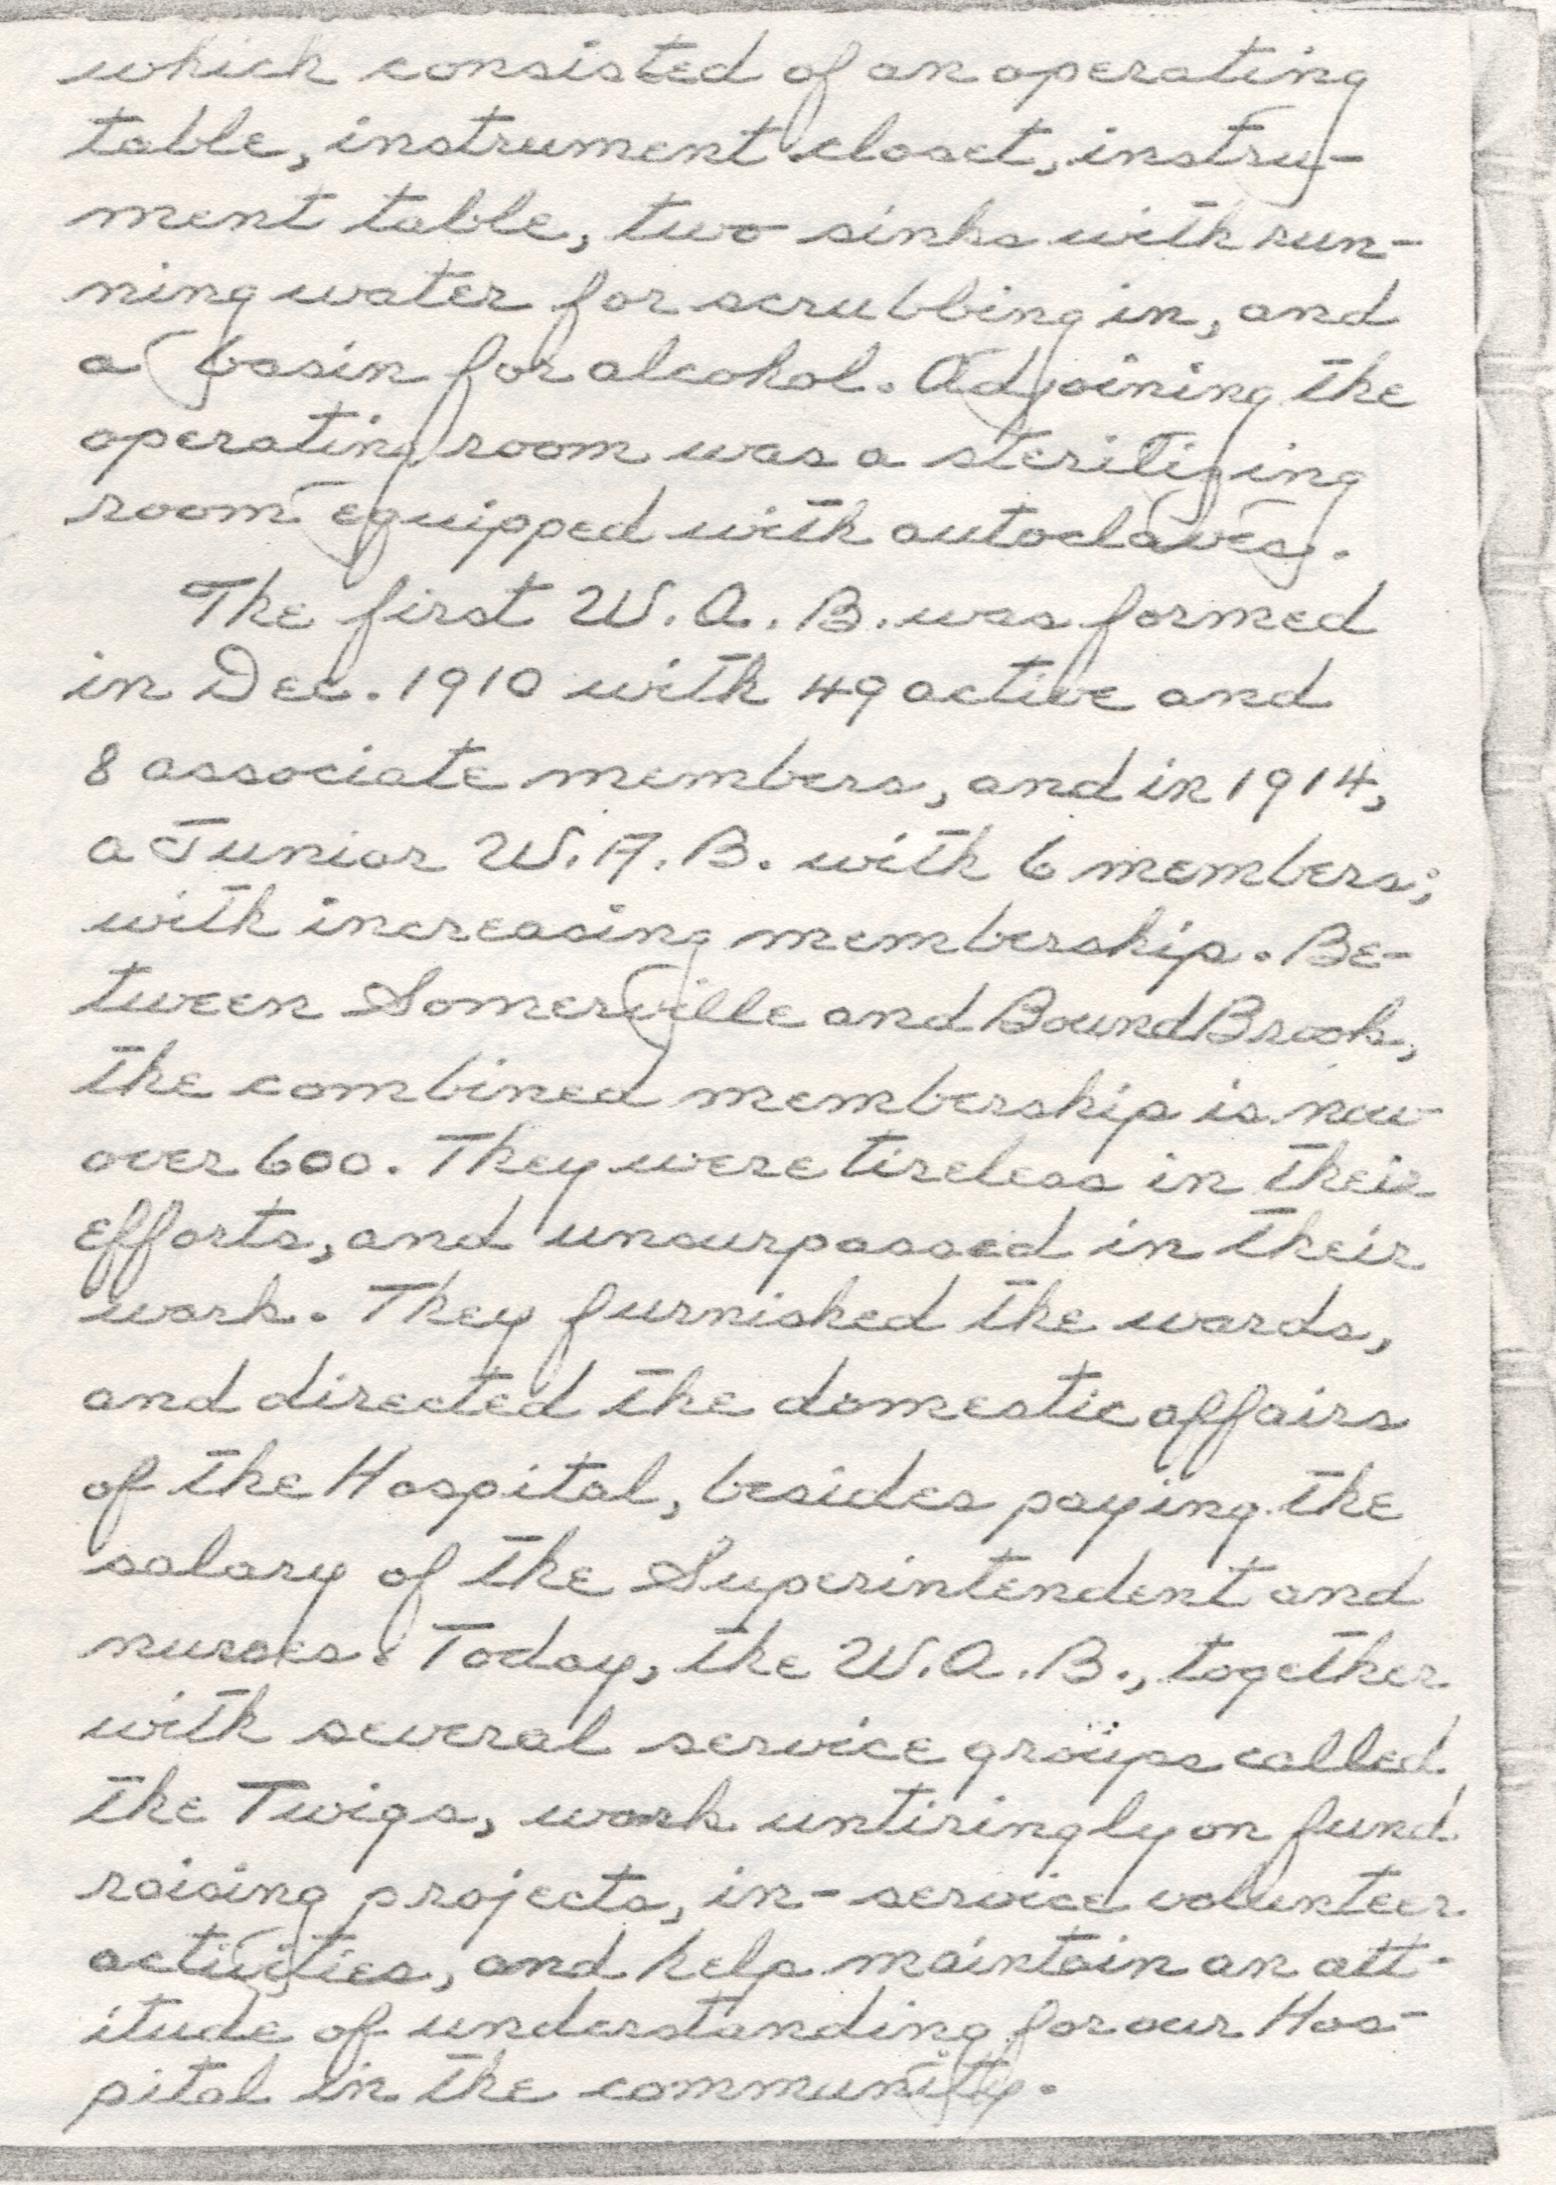 which consisted of an operating
table, instrument closet, instru-
ment table, two sinks with run-
ning water for scrubbing in, and
a basin for alcohol. Adjoining the
operating room was a sterilizing
room equipped with autoclaves.
The first W. A. B. was formed
in Dec. 1910 with 49 active and
8 associate members, and in 1914,
a Junior W. A. B. with 6 members;
with increasing membership. Be-
tween Somerville and Bound Brook,
the combined membership is now
over 600. They were tireless in their
efforts, and unsurpassed in their
work. They furnished the wards,
and directed the domestic affairs
of the Hospital, besides paying the
salary of the Superintendent and
nurses. Today, the W. A. B., together
with several service groups called
the Twigs, work untiringly on fund
raising projects, in-service volunteer
activities, and help maintain an att-
itude of understanding for our Hos-
pital in the community.